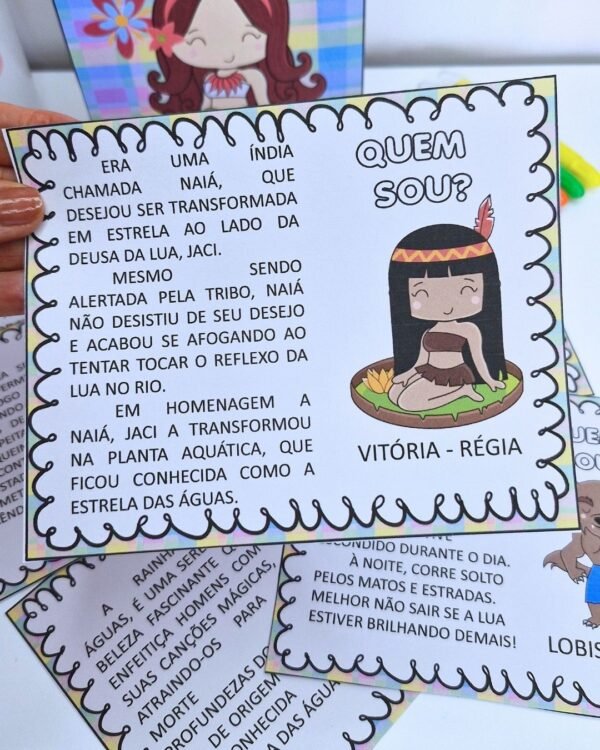 ERA UMA ÍNDIA
CHAMADA NAIÁ, QUE
DESEJOU SER TRANSFORMADA
EM ESTRELA AO LADO DA
DEUSA DA LUA, JACI.
MESMO SENDO
ALERTADA PELA TRIBO, NAIÁ
NÃO DESISTIU DE SEU DESEJO
E ACABOU SE AFOGANDO AO
TENTAR TOCAR O REFLEXO DA
LUA NO RIO.
EM HOMENAGEM A
NAIÁ, JACI A TRANSFORMOU
NA PLANTA AQUÁTICA, QUE
FICOU CONHECIDA COMO A
ESTRELA DAS ÁGUAS.
QUEM
SOU?
VITÓRIA - RÉGIA
DURANTE O DIA.
À NOITE, CORRE SOLTO
PELOS MATOS E ESTRADAS.
MELHOR NÃO SAIR SE A LUA
ESTIVER BRILHANDO DEMAIS!
A
ÁGUAS, É UMA
BELEZA FASCINANTE
ENFEITIÇA HOMENS COM
SUAS CANÇÕES MÁGICAS,
ATRAINDO-OS PARA
MORTE
PROFUNDEZAS
DE ORIGEM
CONHECIDA
DAS